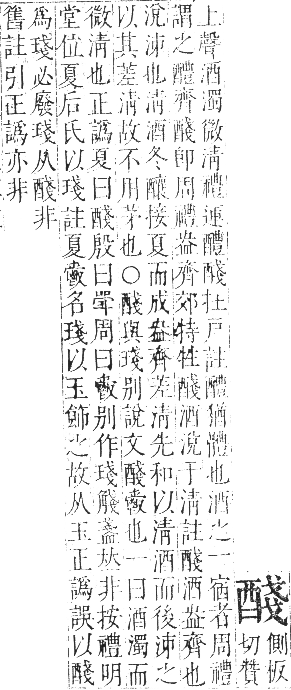 醆側板
切贊
上聲酒濁微淸禮運醴醆在戸註醴猶體也酒之一宿者周禮
謂之醴齊醆卽周禮盎齊郊特牲醆酒涗于淸註醆酒盎齊也
涗泲也淸酒冬釀接夏而成盎齊差淸先和以淸酒而後泲之
以其差淸故不用茅也○醆與琖別說文醆爵也一曰酒濁而
微淸也正譌夏曰醆殷曰斝周曰爵別作琖盞𠀤非按禮明
堂位夏后氏以琖註夏爵名琖以玉飾之故从玉正譌誤以醆
爲琖必廢琖从醆非
舊註引正譌亦非